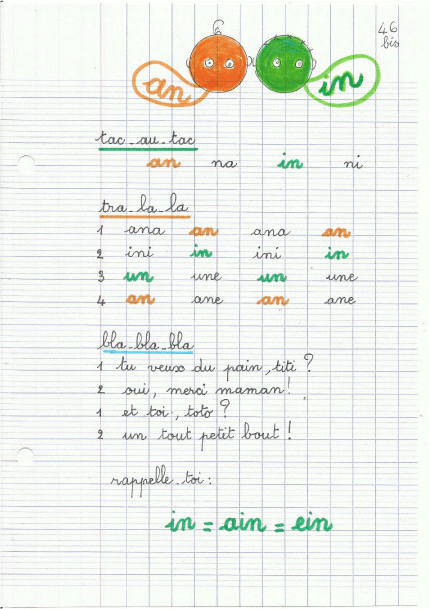 46
bis
an in
tac_au_tac
an na in ni
tra_la_la
1 ana an ana an
2 ini in ini in
3 un une un une
4 an ane an ane
bla_bla_bla
1 tu veux du pain, titi ?
2 oui, merci maman !
1 et toi, toto ?
2 un tout petit bout !
rappelle_toi :
in = ain = ein